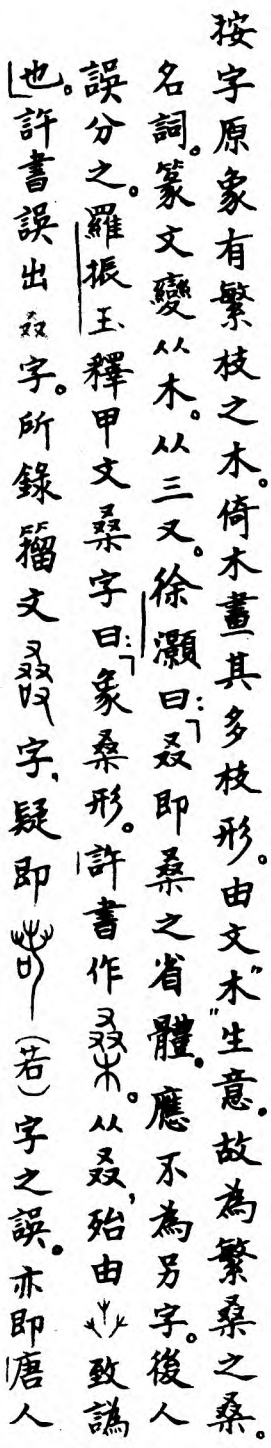 按字原象有繁枝之木。倚木畫其多枝形。由文"木"生意。故為繁桑之桑。
名詞。篆文變从木。从三又。徐灝曰：「叒即桑之省體。應不為另字。後人
誤分之。羅振玉釋甲文桑字曰：「象桑形。許書作桑。从叒，殆由致譌
也。」許書誤出叒字。所錄籀文字，疑即（若）字之誤。亦即唐人